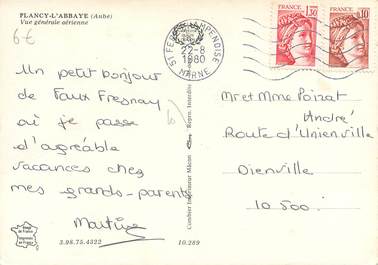 PLANCY-L'ABBAYE (Aube)
Vue générale aérienne
6€
Un petit bonjour
de Faux Fresnay
où je passe
d'agréable
vacances chez
mes grands-parents
Martine
Image de France
Imprimée en France
3.96.75.4322
10.289
Combier Imprimeur Mâcon
Repro. Interdite
22-8
1980
MARNE
FRANCE
1,30
FRANCE
0,10
Mr et Mme Poirat
André
Route d'Unienville
Dienville
10 500